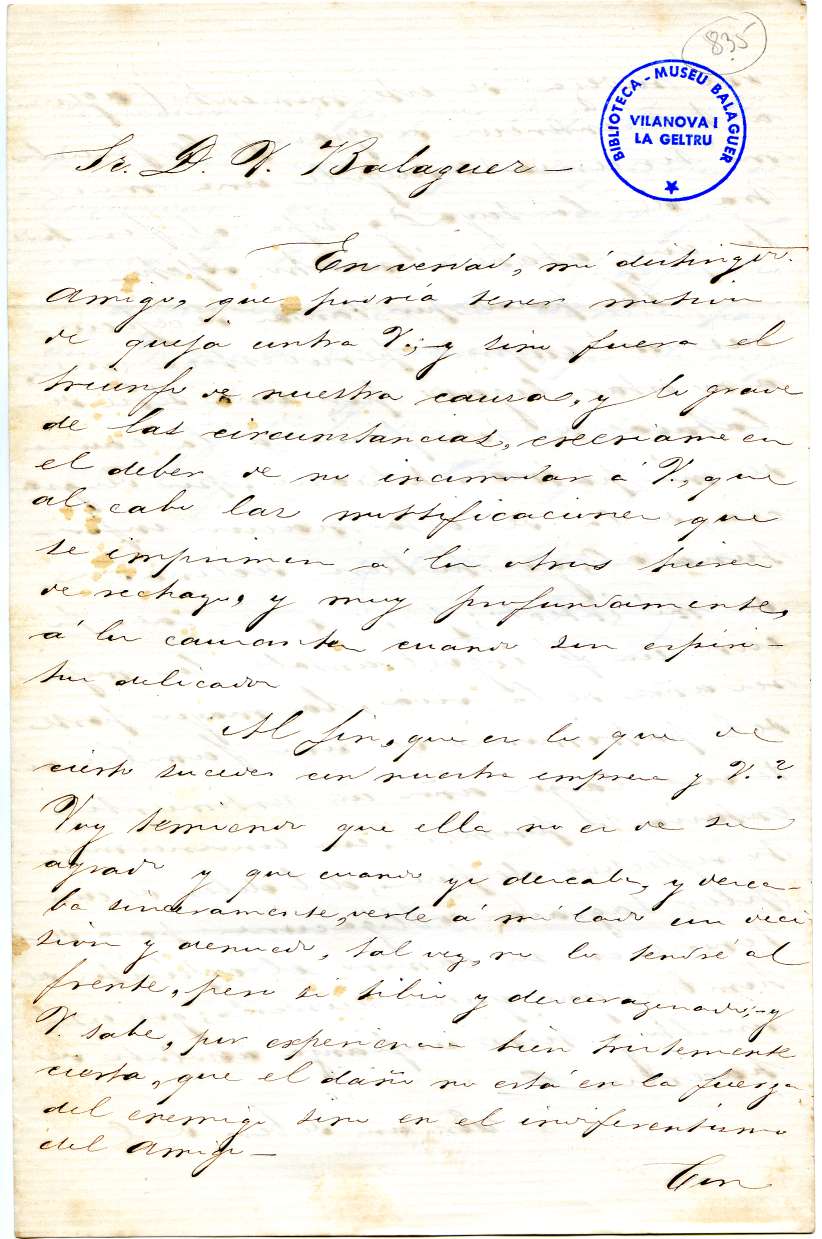 835
BIBLIOTECA - MUSEU BALAGUER
VILANOVA I
LA GELTRU
Sr. D. V. Balaguer—
En verdad, mi disting.do
amigo, que podría tener motivo
de queja contra V.; y sino fuera el
triunfo de nuestra causa, y lo grave
de las circunstancias, creeríame en
el deber de no incomodar á V., que
al cabo las mortificaciones que
se imprimen á los otros hieren
de rechazo, y muy profundamente,
á los causantes cuando son espíri-
tus delicados
Al fin, que es lo que de
cierto sucede con nuestra empresa y V.?
Voy temiendo que ella no es de su
agrado y que cuando yo deseaba, y desea-
ba sinceramente, verle á mi lado con deci
sión y denuedo, tal vez, no lo tendré al
frente, pero si tibio y descorazonado; y
V. sabe, por experiencia bien tristemente
cierta, que el daño no está en la fuerza
del enemigo sino en el indiferentismo
del amigo—
Con